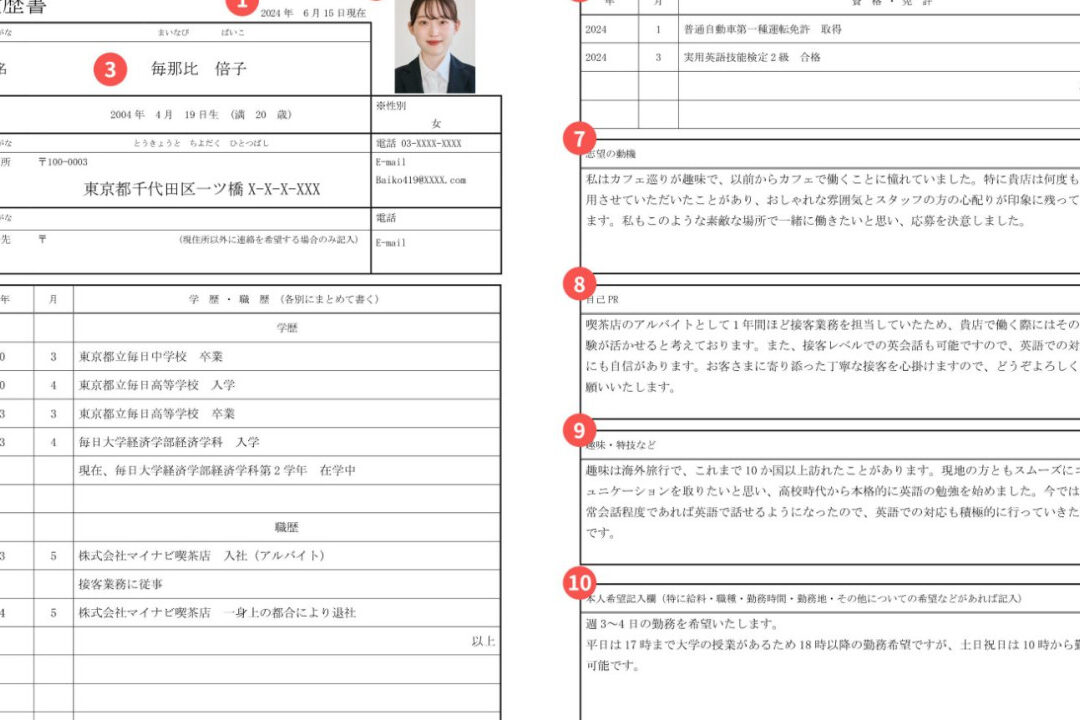 歴書
1
2024年 6月15日現在
がな まいなび ばいこ
名
3
毎那比 倍子
2004年 4月 19日生 (満 20 歳)
※性別
女
がな とうきょうと ちよだく ひとつばし
電話 03-XXXX-XXXX
所 〒100-0003
東京都千代田区一ツ橋 X-X-X-XXX
E-mail
Baiko419@XXXX.com
がな
電話
先 〒 (現住所以外に連絡を希望する場合のみ記入)
E-mail
年 月 学 歴 ・ 職 歴 (各別にまとめて書く)
学歴
0 3 東京都立毎日中学校 卒業
0 4 東京都立毎日高等学校 入学
3 3 東京都立毎日高等学校 卒業
3 4 毎日大学経済学部経済学科 入学
現在、毎日大学経済学部経済学科第2学年 在学中
職歴
3 5 株式会社マイナビ喫茶店 入社(アルバイト)
接客業務に従事
4 5 株式会社マイナビ喫茶店 一身上の都合により退社
以上
年 月 資 格 ・ 免 許
2024 1 普通自動車第一種運転免許 取得
2024 3 実用英語技能検定2級 合格
7
志望の動機
私はカフェ巡りが趣味で、以前からカフェで働くことに憧れていました。特に貴店は何度も
用させていただいたことがあり、おしゃれな雰囲気とスタッフの方の心配りが印象に残って
ます。私もこのような素敵な場所で一緒に働きたいと思い、応募を決意しました。
8
自己PR
喫茶店のアルバイトとして1年間ほど接客業務を担当していたため、貴店で働く際にはその
験が活かせると考えております。また、接客レベルでの英会話も可能ですので、英語での対
にも自信があります。お客さまに寄り添った丁寧な接客を心掛けますので、どうぞよろしく
願いいたします。
9
趣味・特技など
趣味は海外旅行で、これまで10か国以上訪れたことがあります。現地の方ともスムーズにコ
ュニケーションを取りたいと思い、高校時代から本格的に英語の勉強を始めました。今では
常会話程度であれば英語で話せるようになったので、英語での対応も積極的に行っていきた
です。
10
本人希望記入欄(特に給料・職種・勤務時間・勤務地・その他についての希望などがあれば記入)
週3~4日の勤務を希望いたします。
平日は17時まで大学の授業があるため18時以降の勤務希望ですが、土日祝日は10時から勤
可能です。